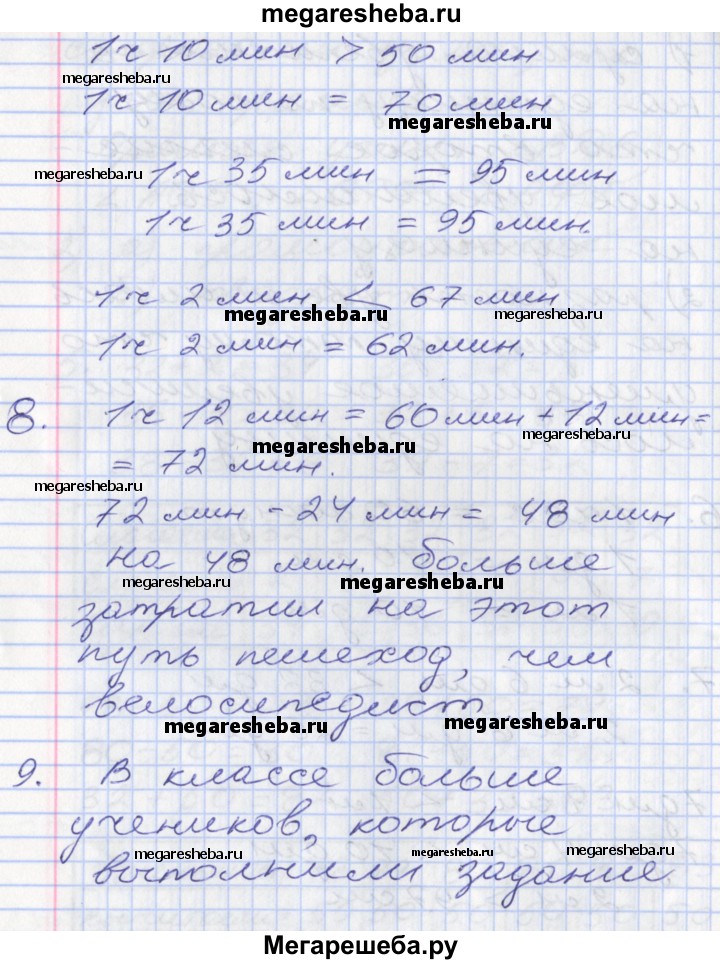 megaresheba.ru
1 ч 10 мин > 50 мин
megaresheba.ru
1 ч 10 мин = 70 мин
megaresheba.ru
megaresheba.ru
1 ч 35 мин = 95 мин
1 ч 35 мин = 95 мин.
1 ч 2 мин < 67 мин
megaresheba.ru megaresheba.ru
1 ч 2 мин = 62 мин.
8. 1 ч 12 мин = 60 мин + 12 мин =
megaresheba.ru megaresheba.ru
= 72 мин.
megaresheba.ru
72 мин - 24 мин = 48 мин
на 48 мин. больше
megaresheba.ru megaresheba.ru
затратил на этот
путь пешеход, чем
велосипедист.
megaresheba.ru megaresheba.ru
9. В классе больше
учеников, которые
megaresheba.ru megaresheba.ru megaresheba.ru
выполнили задание.
Мегарешеба.ру